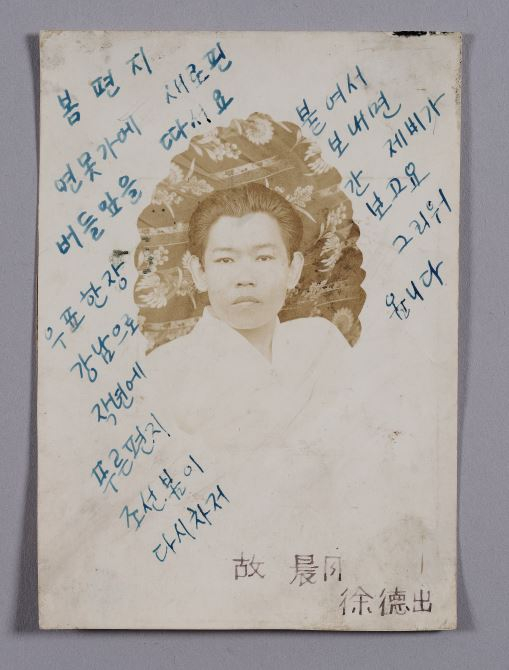 봄 편 지
연못가에 새로핀
버들잎을 따서요
우표한장 붙여서
강남으로 보내면
작년에 간 제비가
푸른편지 보고요
조선봄이 그리워
다시차저 옵니다
故 晨月
徐德出